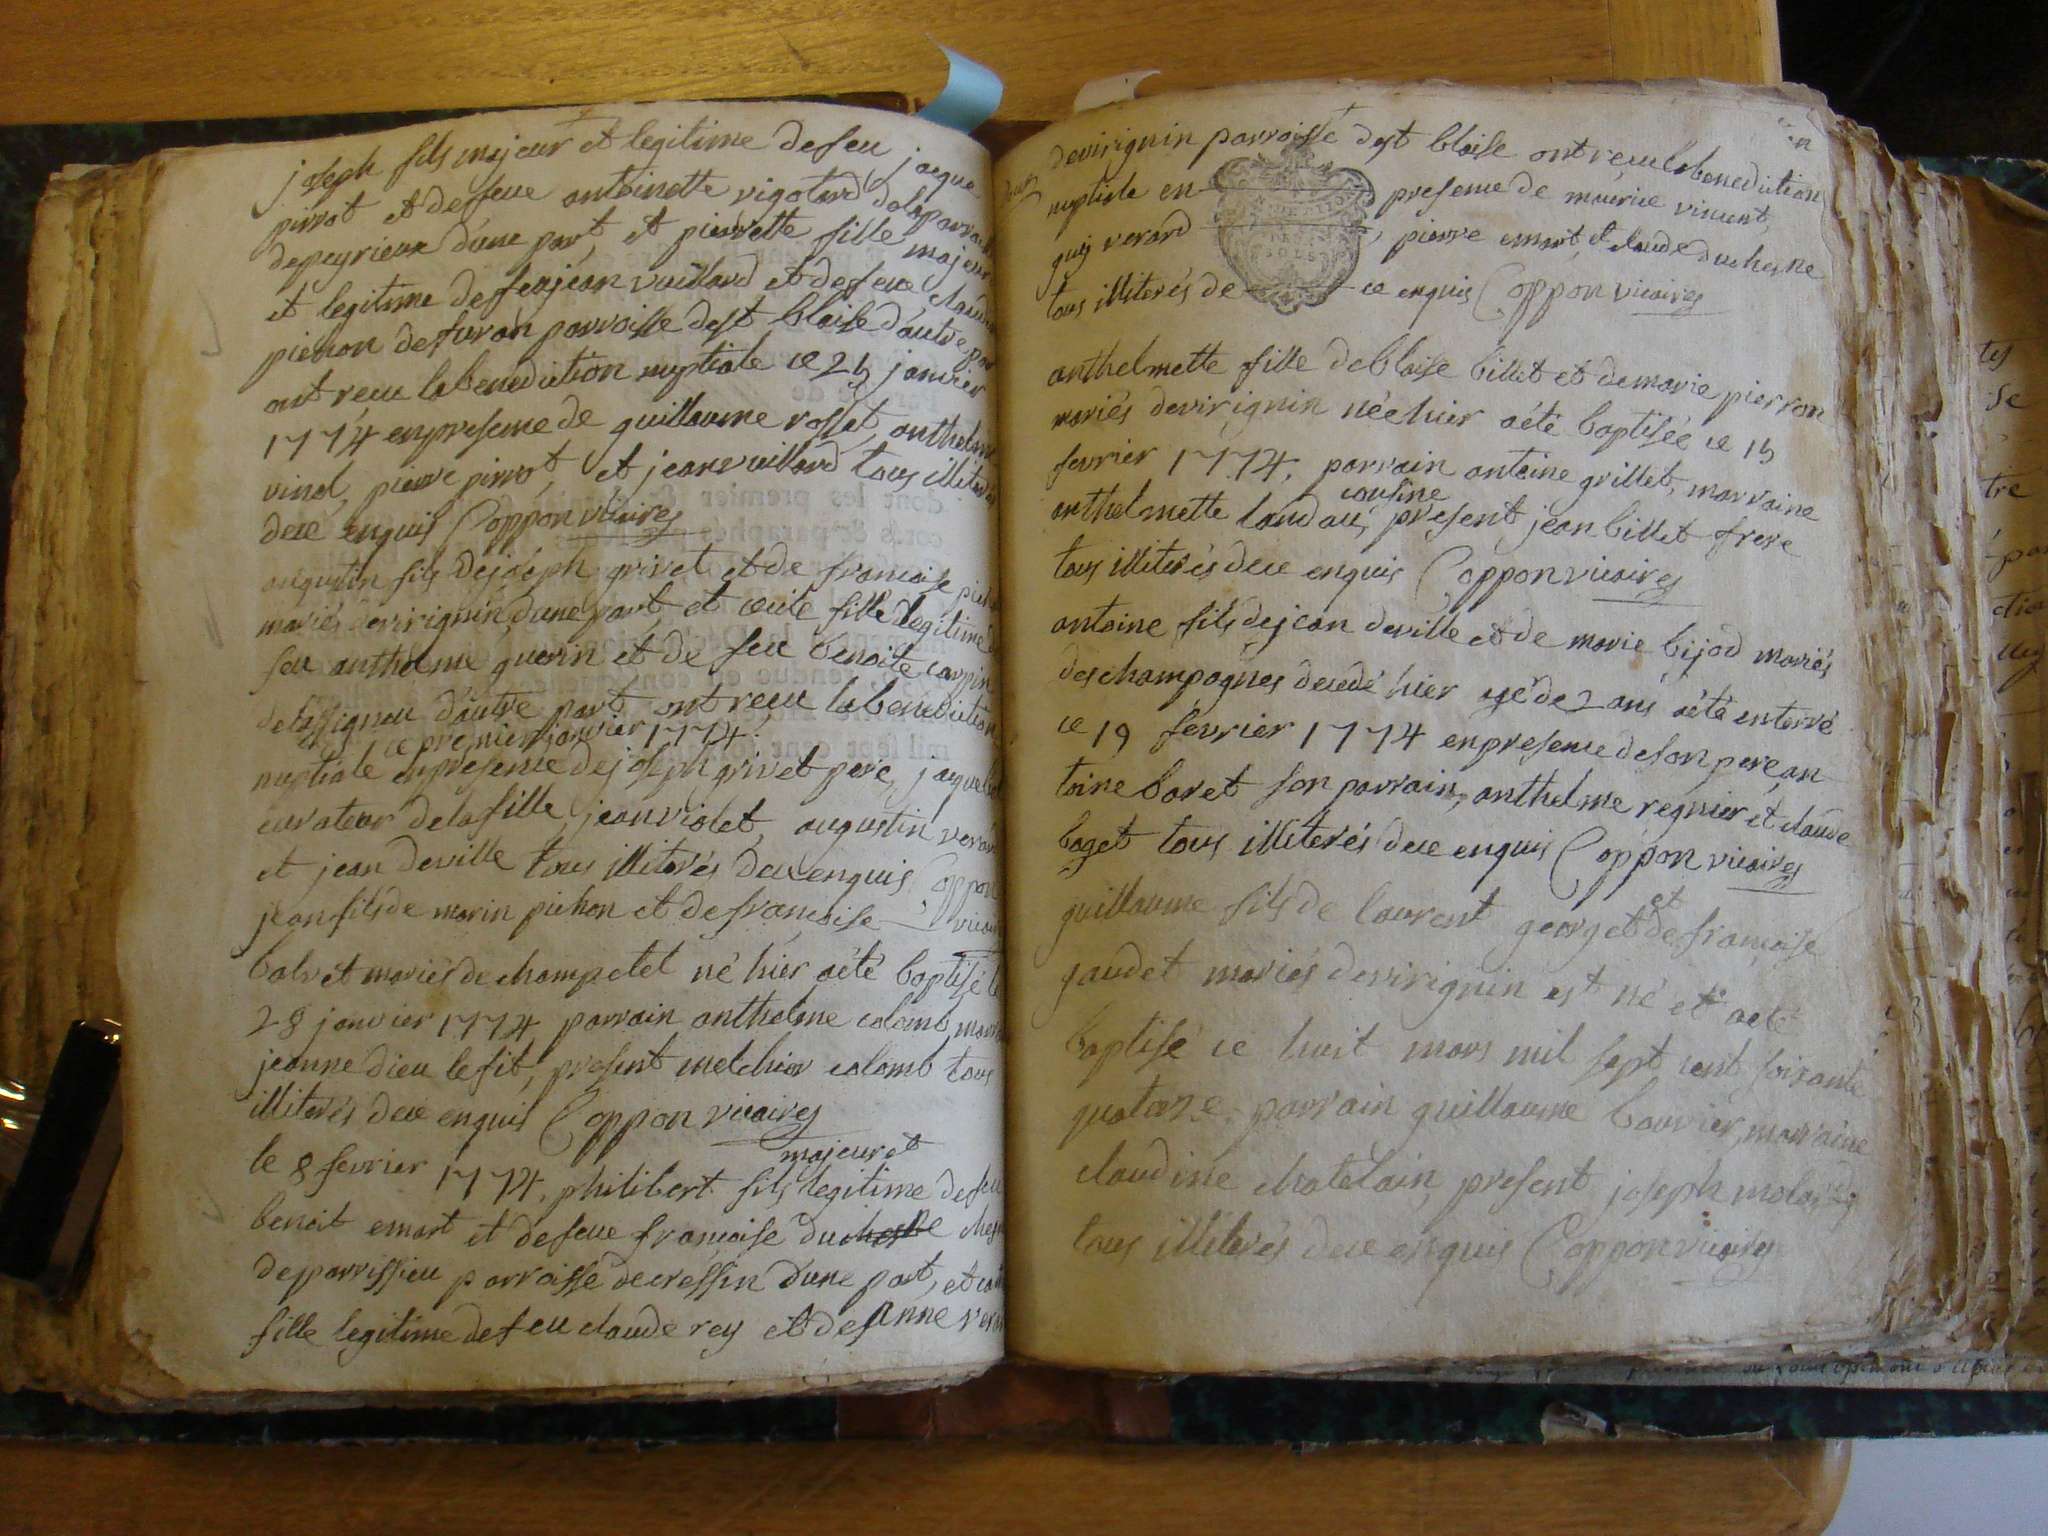 joseph fils majeur et legitime de feu jacque
pirrot et de feue antoinette vigotard de la parroisse
de peyrieux d'une part, et pierrette fille majeure
et legitime de feu jean vuillard et de feue claudine
pichon de furan parroisse de st blaise d'autre part
ont recu la benediction nuptiale ce 25 janvier
1774 en presence de guillaume rosset, anthelme
vinol, pierre pirrot, et jean vuillard tous illiterés
de ce enquis Coppon vicaires
augustin fils de joseph grivet et de francoise
mariés de virignin d'une part, et cecile fille legitime de
feu anthelme guerin et de feu benoite carpin
d'autre part ont recu la benediction
ce premier janvier 1774.
nuptiale en presence de joseph grivet pere, jacque
curateur de la fille, jean violet, augustin verard
et jean deville tous illiterés de ce enquis Coppon
jean fils de marin pichon et de francoise vicaires
balvet mariés de champetel né hier a été baptisé le
28 janvier 1774 parrain anthelme colomb, marraine
jeanne dieu le fit, present melchior colomb tous
illiterés de ce enquis Coppon vicaires
majeur et
le 8 fevrier 1774, philibert fils legitime de feu
benoit emart et de feue francoise duchesne
de parrissieu parroisse de cressin d'une part, et
fille legitime de feu claude rey et de anne verard
de virignin parroisse de st blaise ont recu la benediction
nuptiale en presence de maurice vincent,
guy verard, pierre emart, et claude duchesne
tous illiterés de ce enquis Coppon vicaires
anthelmette fille de blaise billet et de marie pierron
mariés de virignin née hier a été baptisée ce 15
fevrier 1774, parrain antoine grillet, marraine
cousine
anthelmette landau, present jean billet frere
tous illiterés de ce enquis Coppon vicaires
antoine fils de jean deville et de marie bijod mariés
des champagnes decedé hier agé de 2 ans a été enterré
ce 19 fevrier 1774 en presence de son pere, an
toine boret son parrain, anthelme regnier et claude
baget tous illiterés de ce enquis Coppon vicaires
et
guillaume fils de laurent georget de francoise
gaudet mariés de virignin est né et a été
baptisé ce huit mars mil sept cent soixante
quatorze parrain guillaume bouvier, marraine
claudine chatelain, present joseph molard
tous illiterés de ce enquis Coppon vicaires